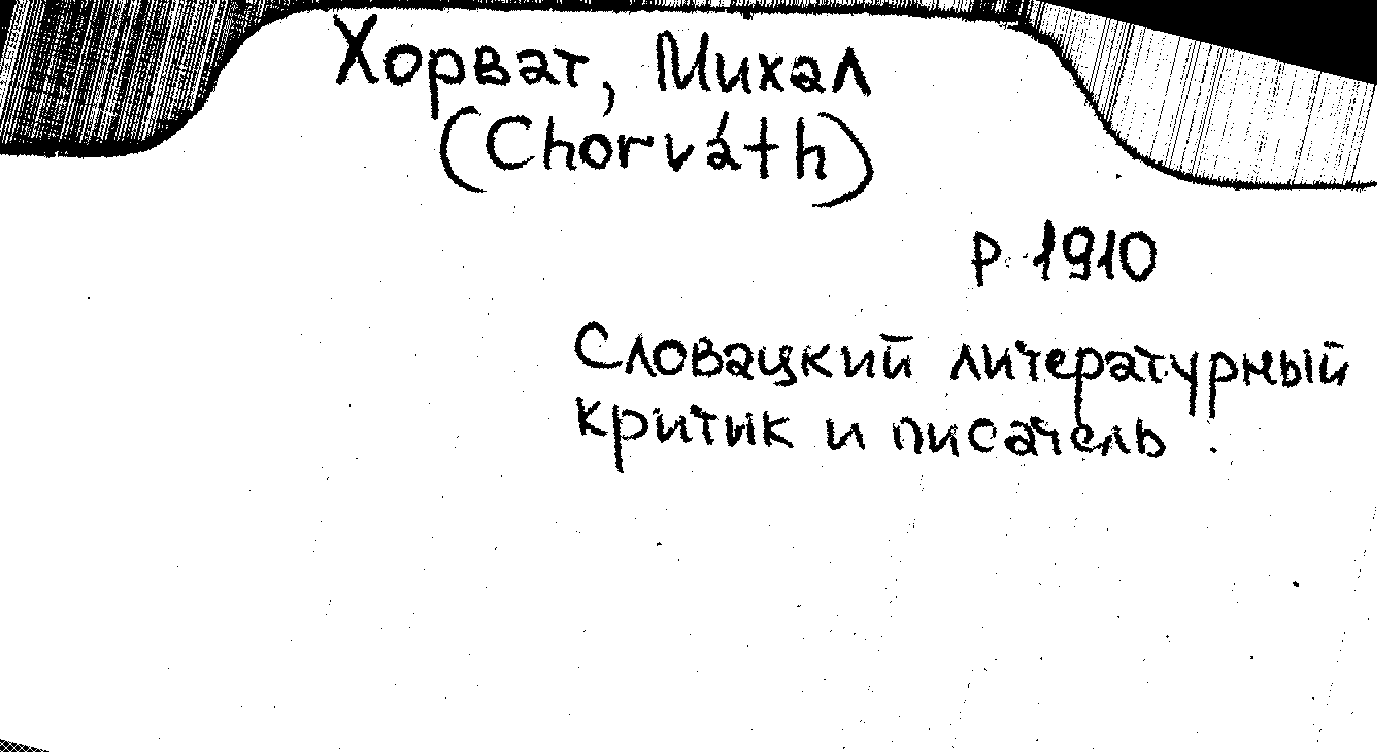 Хорват, Михал
(Chorváth)
р. 1910
Словацкий литературный
критик и писатель.